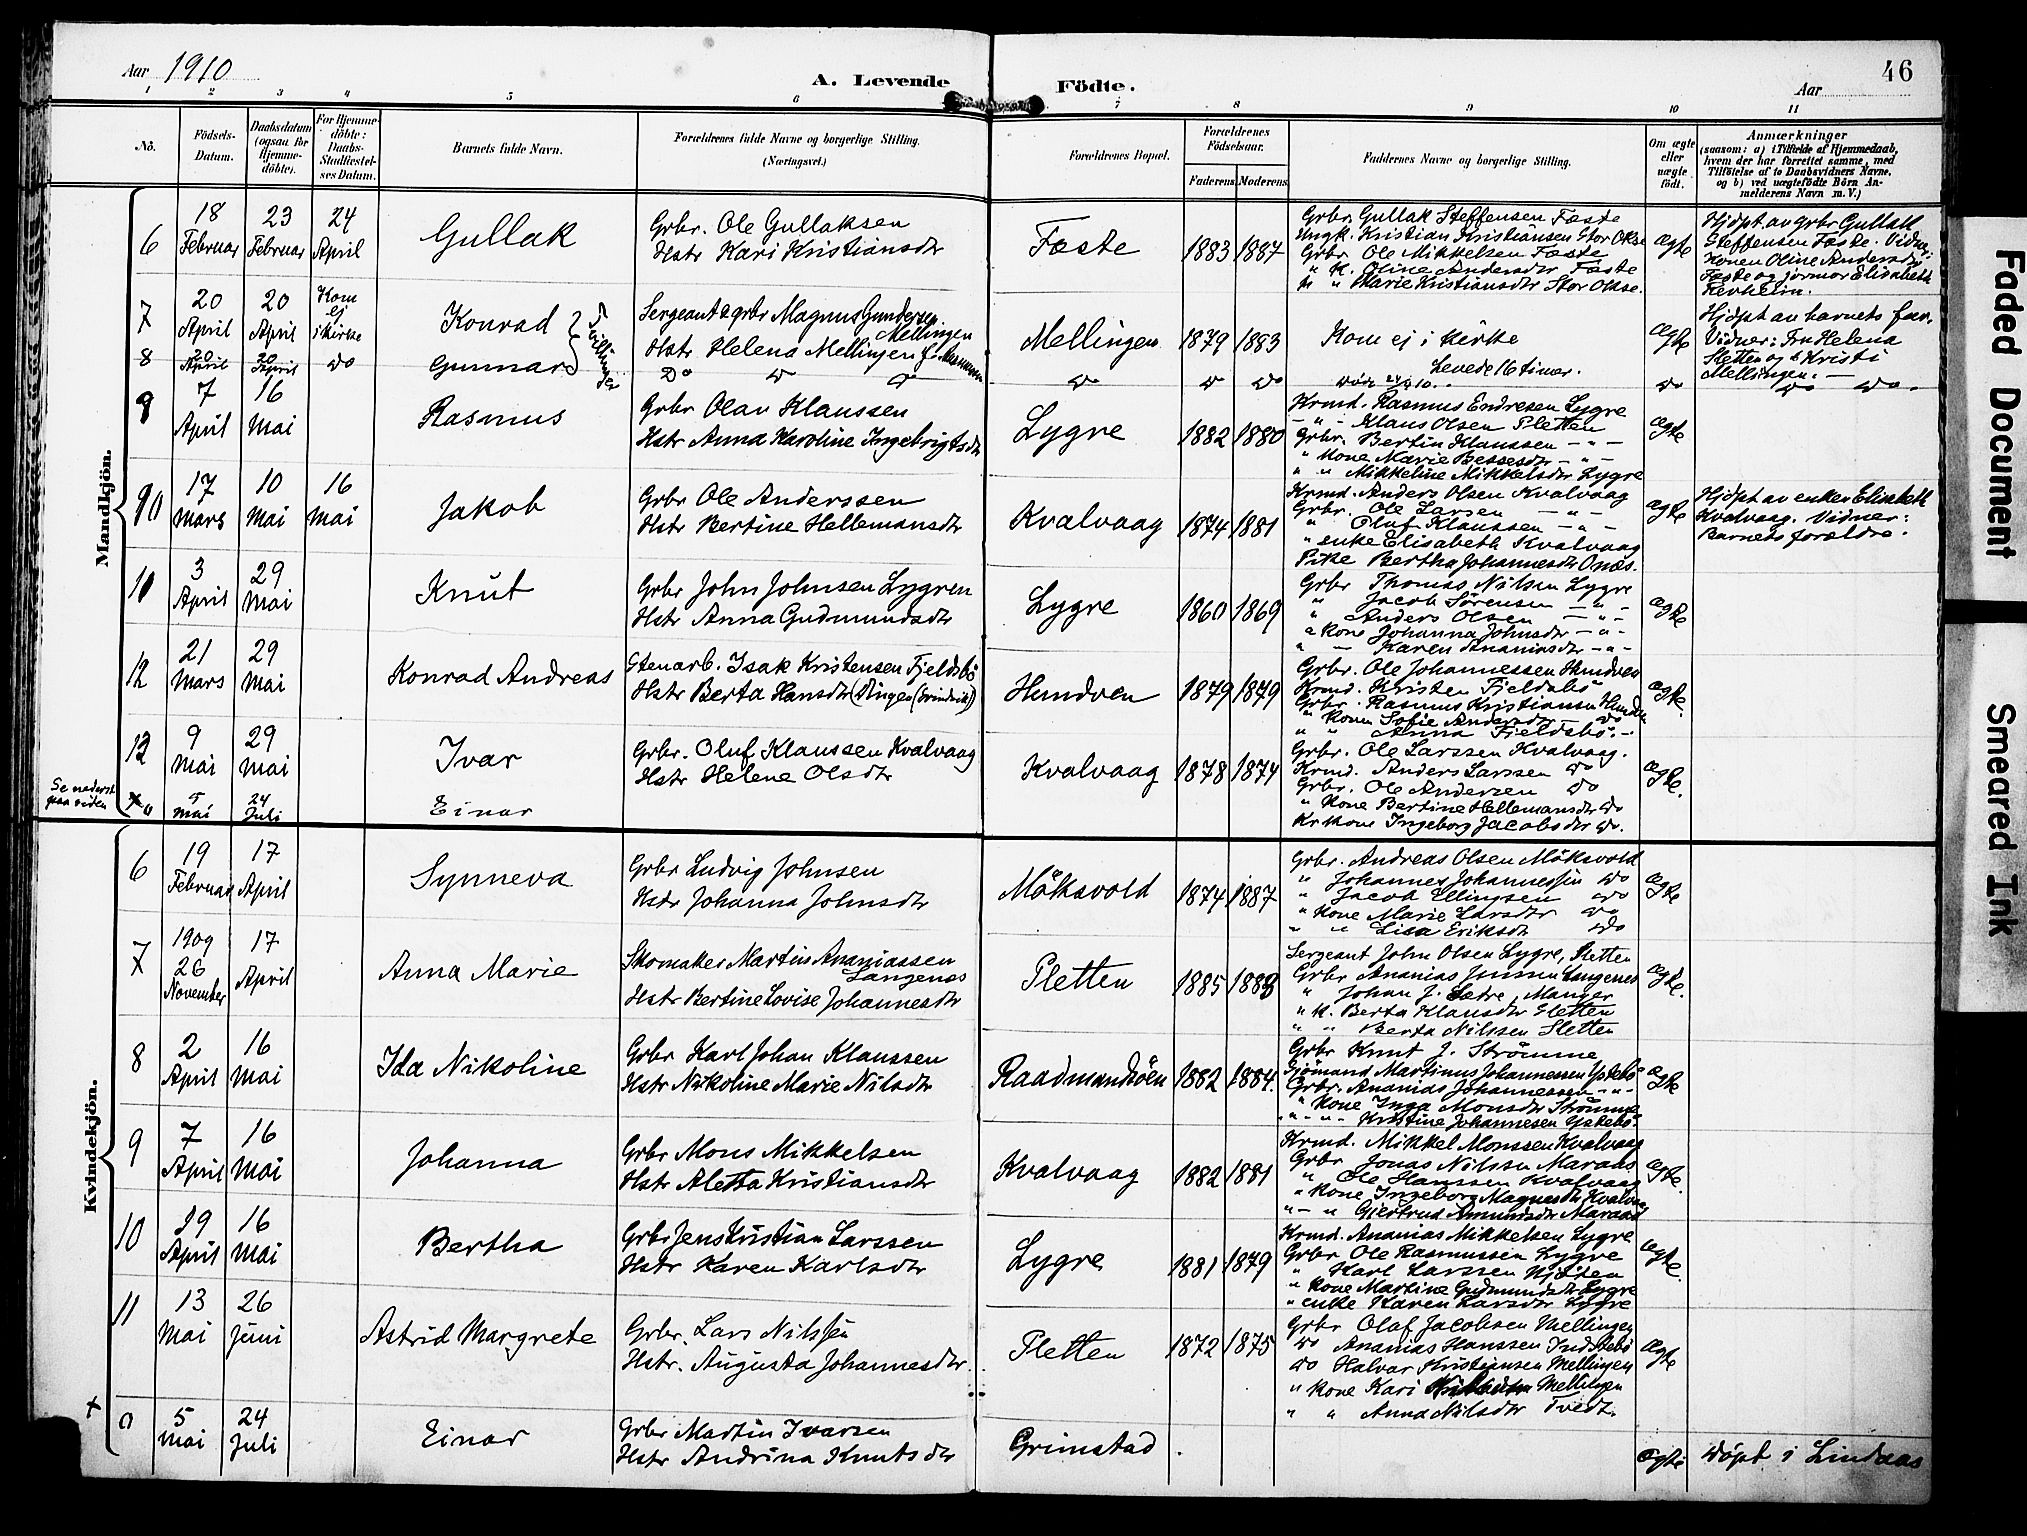 Aar 1910
A. Levende Födte.
Aar
46
1 2 3 4 5 6 7 8 9 10 11
No.
Födsels-Datum.
Daabsdatum (ogsaa for Hjemme-döbte).
For Hjemme-döbte: Daabs-Stadfæstel-ses Datum.
Barnets fulde Navn.
Forældrenes fulde Navne og borgerlige Stilling.
(Næringsvei.)
Forældrenes Bopæl.
Forældrenes Födselsaar.
Faderens Moderens
Faddernes Navne og borgerlige Stilling.
Om ægte eller uægte födt.
Anmærkninger
(saasom: a) i Tilfælde af Hjemmedaab,
hvem der har forrettet samme, med
Tilföielse af to Daabsvidners Navne,
og b) ved uægtefödte Börn An-
melderens Navn m. V.)
Mandkjön.
6
18 Februar
23 Februar
24 April
Gullak
Grbr. Ole Gullaksen
Hstr Kari Kristiansdtr
Fæste
1883 1887
Grbr. Gullak Steffensen Fæste
Ungk. Kristian Kristiansen Stor Okse
Grbr Ole Mikkelsen Fæste
" K. Oline Andersdtr Fæste
" " Marie Kristiansdtr Stor Okse.
Ægte
Hjdpt av grbr Gullak
Steffensen Fæste. Vidner:
Konen Oline Andersdtr
Fæste og jormor Elisabeth
Revheim.
7
20 April
20 April
Kom ej i kirke
Konrad
Tvillinger
Sergeant & grbr Magnus Gundersen
Mellingen
Hstr Helena Mellingen f.
Mellingen
1879 1883
Kom ej i kirke
Ægte
Hjdpt av barnets far.
Vidner: Fru Helena
Sletten og Kristi
Mellingen. —
8
20 April
20 April
do
Gunnar
Do do do
do
do do
Levede 16 timer.
do
do do
9
7 April
16 Mai
Rasmus
Grbr Olav Klaussen
Hstr Anna Karoline Ingebrigtsdtr
Lygre
1882 1880
Krmd. Rasmus Endresen Lygre
- " - Klaus Olsen Sletten
Grbr. Bertin Klaussen - " -
" Kone Marie Bessesdtr - " -
" " Mikkeline Mikkelsdtr Lygre
Ægte
10
17 Mars
10 Mai
16 Mai
Jakob
Grbr Ole Anderssen
Hstr Bertine Hellemansdtr
Kvalvaag
1874 1881
Krmd. Anders Olsen Kvalvaag
Grbr. Ole Larsen - " -
" Oluf Klaussen - " -
" enke Elisabeth Kvalvaag
Pike Bertha Johannesdtr Onæs.
Ægte
Hjdpt av enken Elisabeth
Kvalvaag. Vidner:
Barnets forældre.
11
3 April
29 Mai
Knut
Grbr John Johnsen Lygren
Hstr Anna Gudmundsdtr
Lygre
1860 1869
Grbr Thomas Nilsen Lygre
" Jacob Sørensen - " -
" Anders Olsen - " -
" Kone Johanna Johnsdtr - " -
" - Karen Ananiasdtr - " -
Ægte
12
21 Mars
29 Mai
Konrad Andreas
Stenarb. Isak Kristensen Fjeldsbö
Hstr Berta Hansdtr
Hundven
1879 1879
Grbr. Ole Johannessen Hundven
Krmd. Kristen Fjeldsbö
Grbr. Rasmus Kristiansen Hundven
" Konen Sofie Andersdtr - do
" " Anna Fjeldsbö. -
Ægte.
13
9 Mai
29 Mai
Ivar
Grbr. Oluf Klaussen Kvalvaag
Hstr Helene Olsdtr
Kvalvaag
1878 1874
Grbr. Ole Larssen Kvalvaag.
Krmd. Anders Larssen do
Grbr. Ole Andersen do
" Kone Bertine Hellemansdtr do
Krkone Ingeborg Jacobsdtr do.
Ægte.
Se nederst paa siden
0
5 Mai
24 Juli
Einar
Kvindekjön.
6
19 Februar
17 April
Synneva
Grbr Ludvig Johnsen
Hstr Johanna Johnsdtr
Möksvold
1874 1887
Grbr. Andreas Olsen Möksvold
" Johannes Johannessen do
" Jacob Ellingsen do
" Kone Marie Larsdtr do
" " Lisa Eriksdtr do
Ægte
7
1909 26 November
17 April
Anna Marie
Skomaker Martin Ananiassen
Langenes
Hstr Bertine Lovise Johannesdtr
Sletten
1885 1888
Sergeant John Olsen Lygre, Sletten
Grbr Ananias Jensen Langenes
" Johan J. Sætre, Manger
" K. Berta Klausdtr Sletten
" " Berta Nilssen Sletten
Ægte.
8
2 April
16 Mai
Ida Nikoline
Grbr Karl Johan Klaussen
Hstr Nikoline Marie Nilsdtr
Raadmandsöen
1882 1884.
Grbr Knut J. Strömme
Sjömand Martinus Johannessen Yskebö
Grbr. Ananias Johannessen - " -
" Kone Inga Monsdtr Strömme
" - " - Kristine Johannesen Yskebö.
Ægte
9
7 April
16 Mai
Johanna
Grbr Mons Mikkelsen
Hstr Aletta Kristiansdtr
Kvalvaag
1882 1881
Krmd. Mikkel Monssen Kvalvaag
Grbr Jonas Nilssen Maraas
" Ole Hanssen Kvalvaag
" Kone Ingeborg Magnesdtr Kvalvaag
" - " Gjertrud Amundsdtr Maraas
Ægte.
10
29 April
16 Mai
Bertha
Grbr Jens Kristian Larssen
Hstr Karen Karlsdtr
Lygre
1881 1879
Krmd. Ananias Mikkelsen Lygre
Grbr Ole Rasmussen Lygre
" Karl Larssen
" Kone Martine Gudmundsdtr Lygre
" enke Karen Larsdtr Lygre
Ægte.
11
13 Mai
26 Juni
Astrid Margrete
Grbr. Lars Nilssen
Hstr. Augusta Johannesdtr.
Sletten
1872 1875
Grbr Olaf Jacobsen Mellingen
do Ananias Hanssen Indstebö
do Halvar Kristiansen Mellingen
" Kone Kari Mellingen
" " Anna Nilsdtr Tvedt.
Ægte
+ 0
5 Mai
24 Juli
Einar
Grbr Martin Ivarsen
Hstr Andrina Knutsdtr
Grimstad.
Ægte
döpt i Lindaas
Faded Document
Smeared Ink